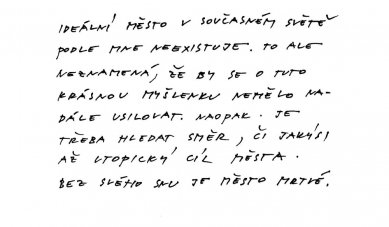 IDEÁLNÍ MĚSTO V SOUČASNÉM SVĚTĚ
PODLE MNE NEEXISTUJE. TO ALE
NEZNAMENÁ, ŽE BY SE O TUTO
KRÁSNOU MYŠLENKU NEMĚLO NA-
DÁLE USILOVAT. NAOPAK. JE
TŘEBA HLEDAT SMĚR, ČI JAKÝSI
AŽ UTOPICKÝ CÍL MĚSTA.
BEZ SVÉHO SNU JE MĚSTO MRTVÉ.